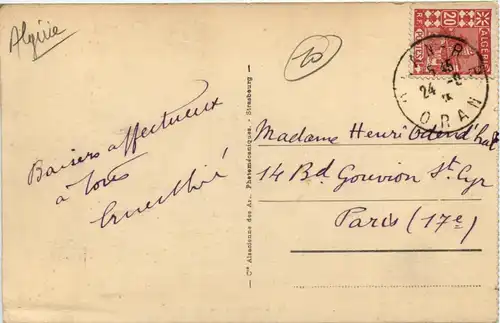 Algérie
10
Baisers affectueux
à tous
Cie Alsacienne des Arts Photomécaniques. - Strasbourg
ALGERIE
20
CENTES
RF
24
ORAN
Madame Henri
14 Bd. Gouvion St. Cyr
Paris (17e)